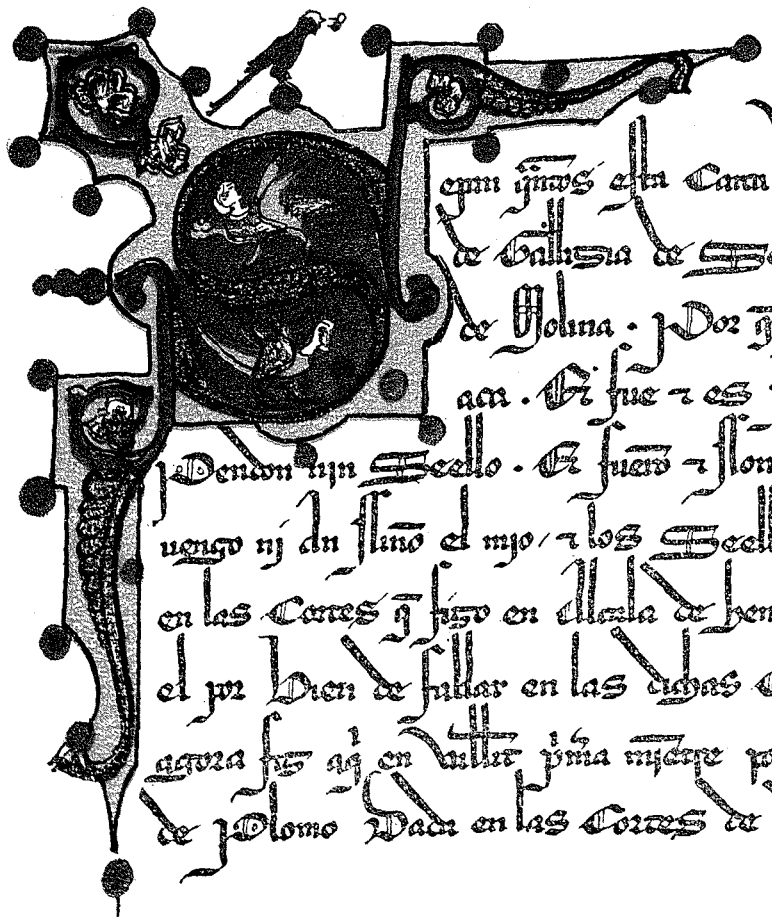 epan q̃ntos esta Carta
de Gallizia de Se
de Molina . Por q̃
aca . Et fue ⁊ es
Pendon nin Seello . Et fuerõ ⁊ son
uengo nj dn̄ el mjo / ⁊ los Seell
en las Cortes q̃ fizo en Alcala de hen
el por Bien de fablar en las dichas C
agora fiz aq̃ en Vallit pm̃a mjētre po
de Plomo Dada en las Cortes de